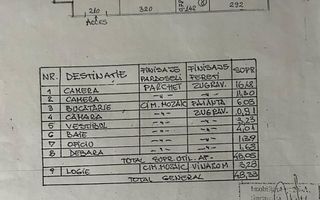 210 320 292
ACCES
NR. DESTINATIE FINISAJ PARDOSELI FINISAJ PERETI SUPR
1 CAMERA PARCHET ZUGRAV.
2 CAMERA -"- -"-
3 BUCATARIE CIM. MOZAIC FAIANTA 6.03
4 CAMARA -"- ZUGRAV. 0.91
5 VESTIBUL -"- -"- 3.23
6 BAIE -"- -"- 4.01
7 OFICIU -"- -"- 1.39
8 DEBARA -"- -"- 1.63
TOTAL SUPR. UTIL. AP.
9 LOGIE CIM. MOZAIC VINAROM 3.23
TOTAL GENERAL